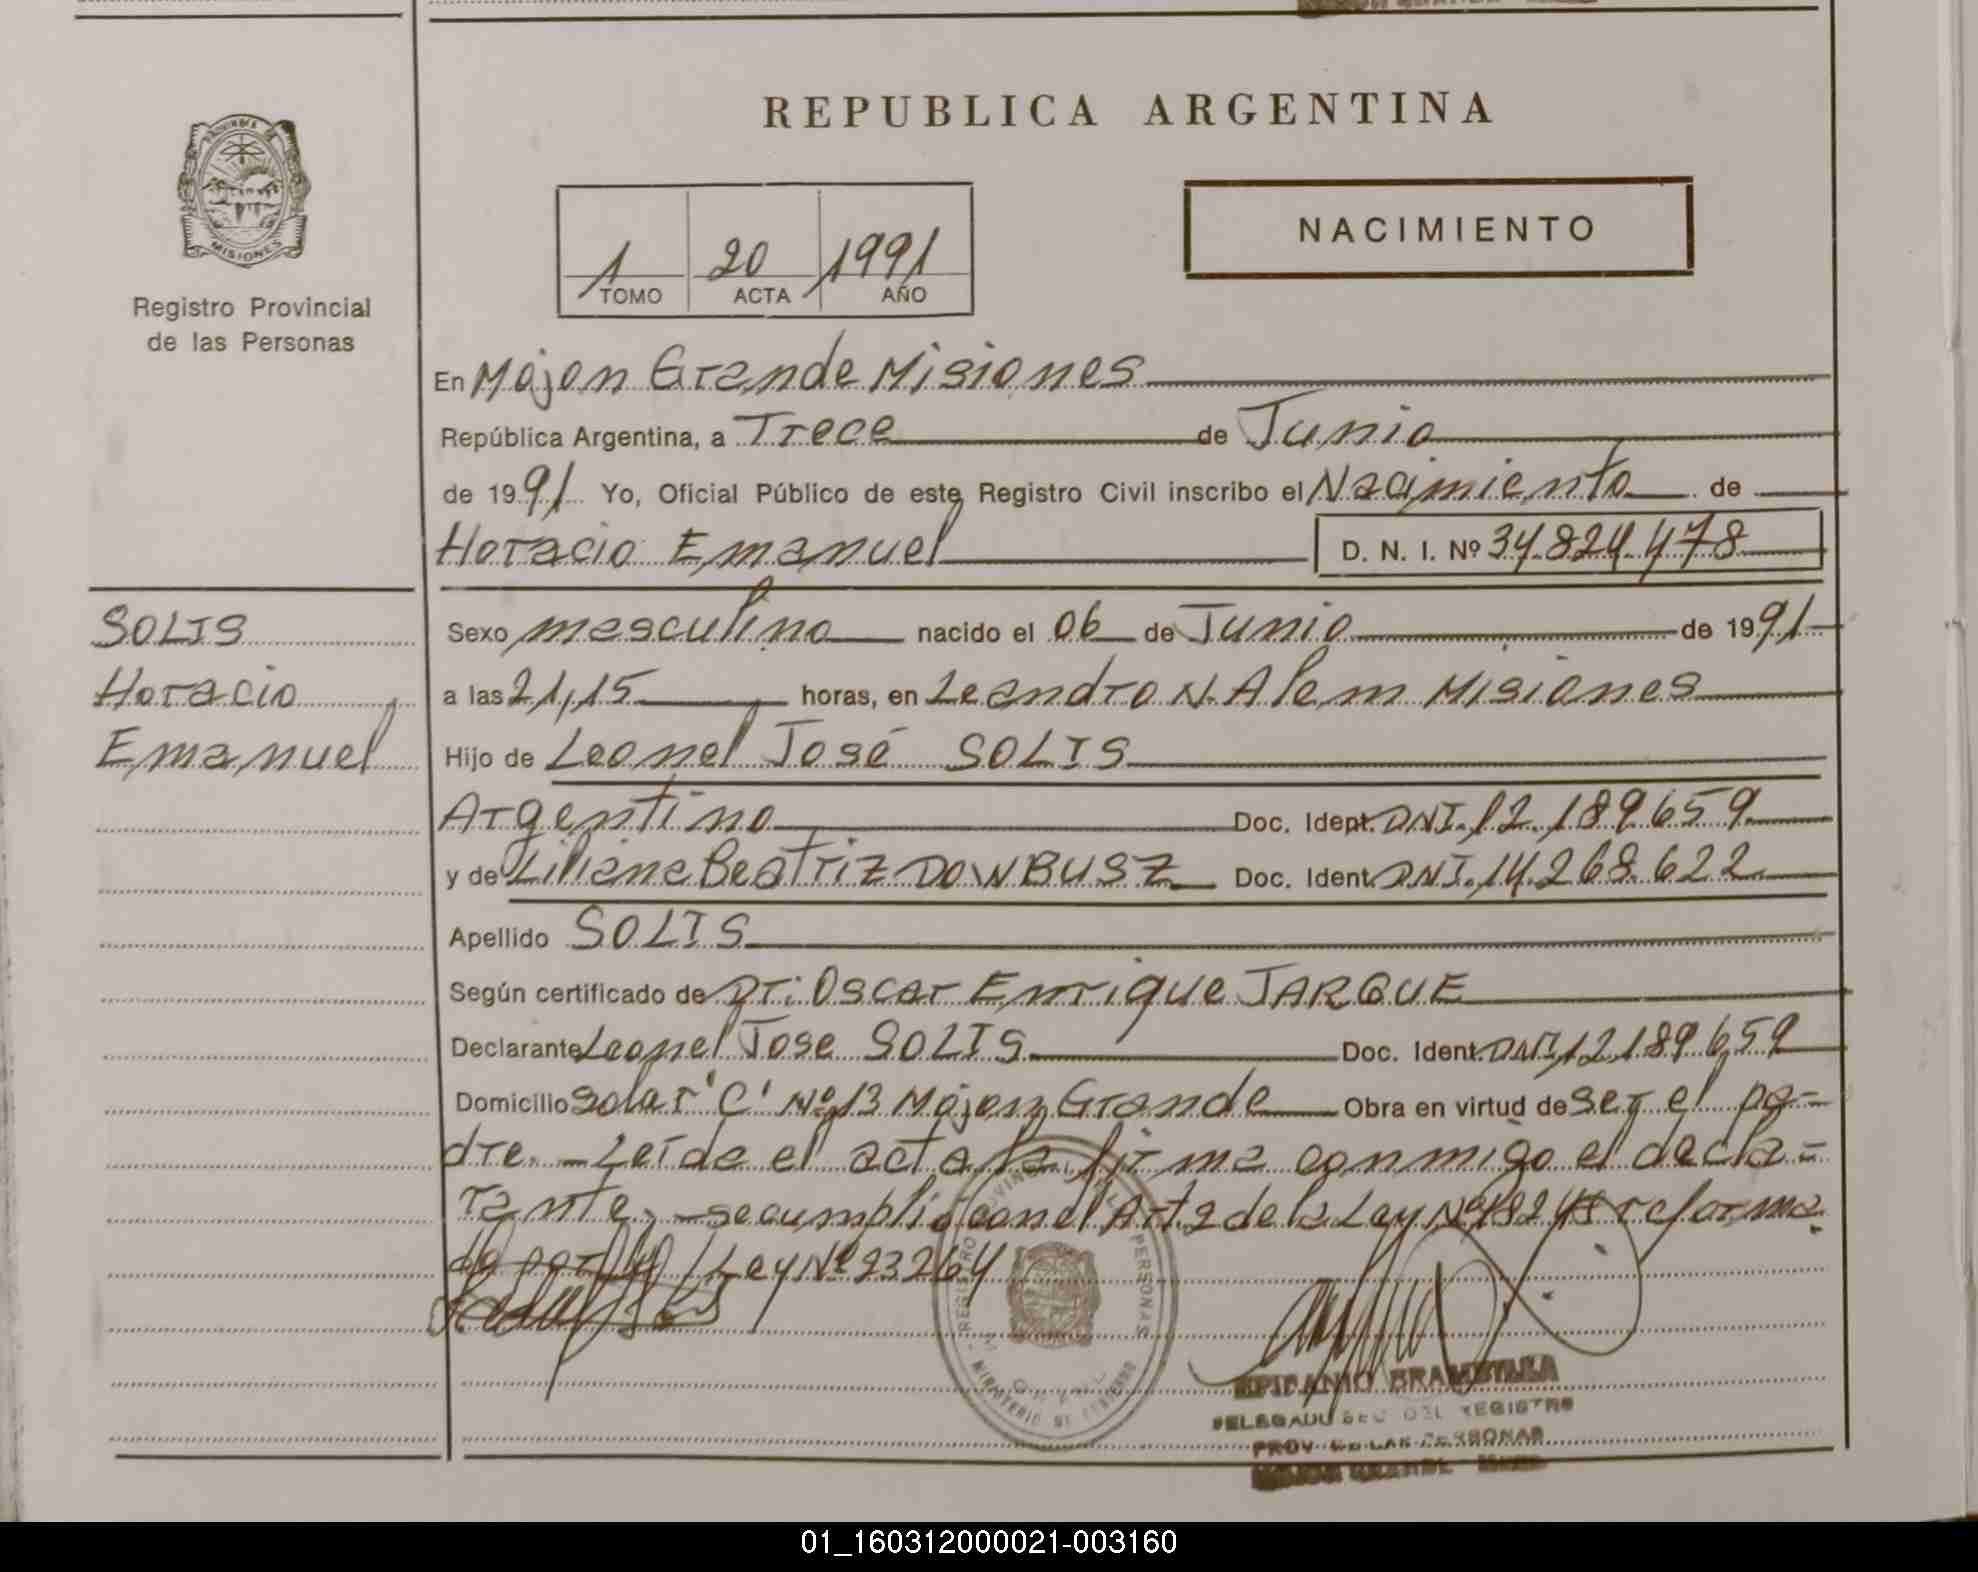 REPUBLICA ARGENTINA
PROVINCIA DE
MISIONES
Registro Provincial
de las Personas
1 20 1991
TOMO ACTA AÑO
NACIMIENTO
En Mojon Grande Misiones
República Argentina, a Trece de Junio
de 1991 Yo, Oficial Público de este Registro Civil inscribo el Nacimiento de
Horacio Emanuel D. N. I. Nº 34.824.478
SOLIS
Horacio
Emanuel
Sexo masculino nacido el 06 de Junio de 1991
a las 21,15 horas, en Leandro N. Alem Misiones
Hijo de Leonel José SOLIS
Argentino Doc. Ident. DNI. 12.189.659
y de Liliana Beatriz DOWBUSZ Doc. Ident. DNI. 14.268.622
Apellido SOLIS
Según certificado de Dr: Oscar Enrique JARQUE
Declarante Leonel Jose SOLIS Doc. Ident. DNI. 12.189.659
Domicilio Solar 'C' Nº 13 Mojon Grande Obra en virtud de ser el pa-
dre. - Leída el acta la firma conmigo el decla-
rante, - se cumplió con el Art. 2 de la Ley Nº 18248 reforma
da por la Ley Nº 23264
REGISTRO PROVINCIAL DE LAS PERSONAS
MINISTERIO DE GOBIERNO
EPIFANIO BRAMBILLA
DELEGADO SEC DEL REGISTRO
PROV. DE LAS PERSONAS
MOJON GRANDE
01_160312000021-003160